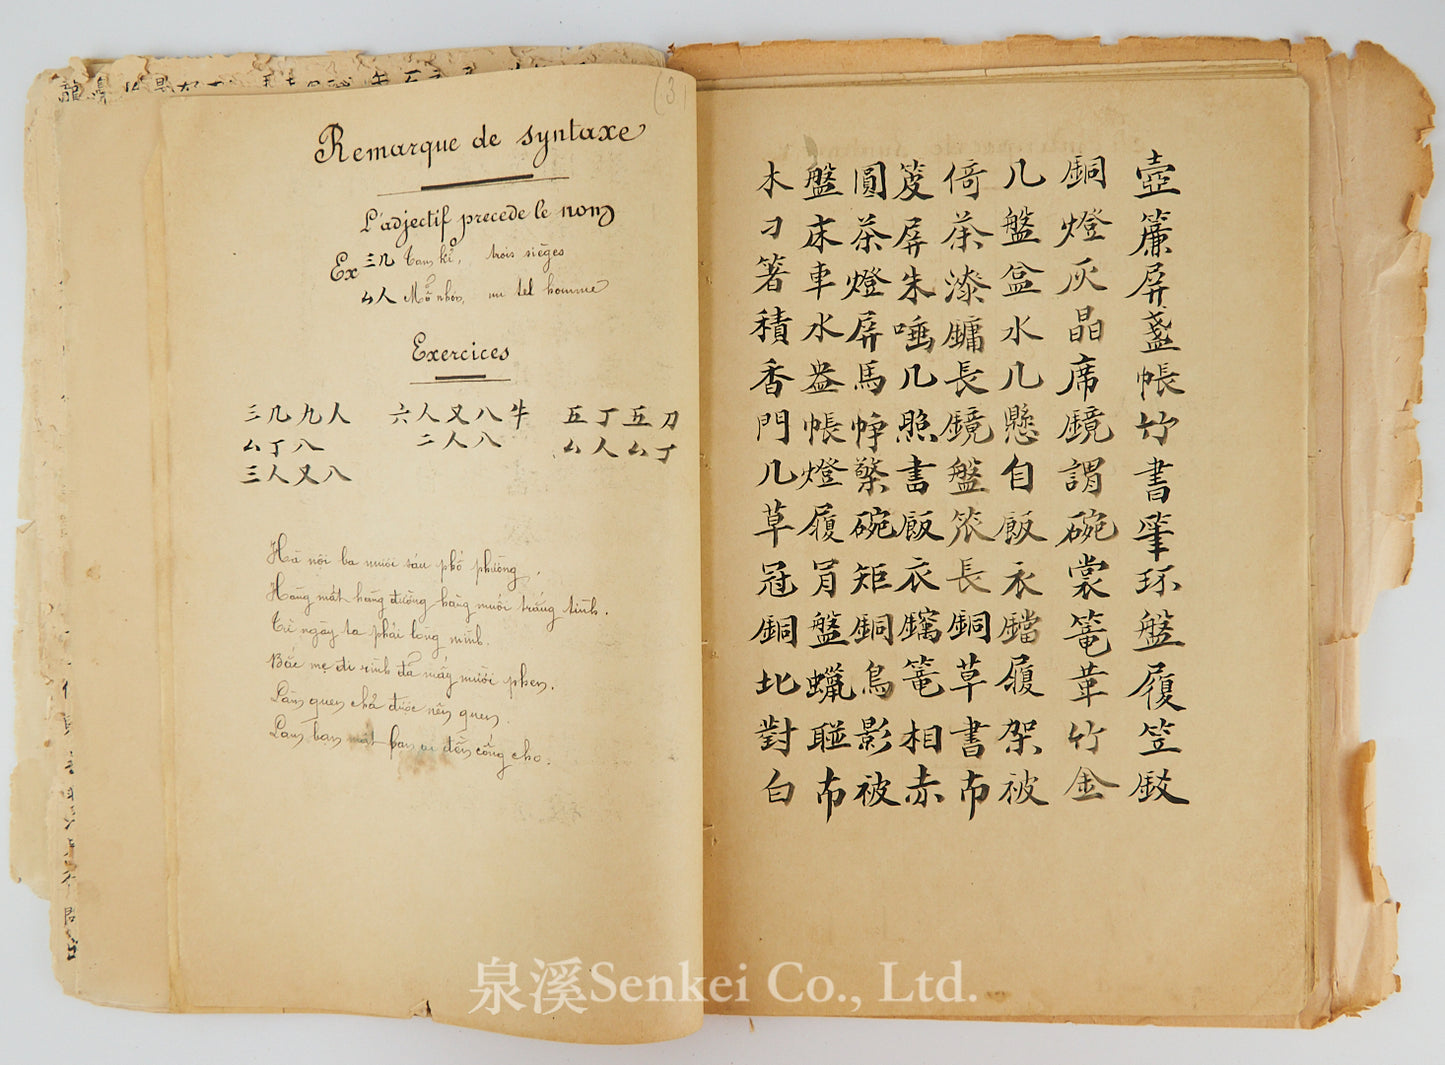 (3)
Remarque de syntaxe
L'adjectif precede le nom
Ex 三几 Tam kỉ, trois sièges
厶人 Mỗ nhơn, un tel homme
Exercices
三几九人 六人又八牛 五丁五刀
厶丁八 二人八 厶人厶丁
三人又八
Hà nội ba mươi sáu phố phường.
Hàng mát hàng đường hàng muối trắng tinh.
Từ ngày ta phải lòng mình.
Bác mẹ đi rình đã mấy mươi phen.
Làm quen chả được nên quen.
Làm bạn mất bạn ai đền công cho.
壺簾屏盞帳竹書筆环盤履笠
銅燈灰晶席鏡謂碗裳篭革竹金
几盤盆水几懸自飯衣鐺履架被
倚茶漆鏞長鏡盤長銅草書布
屏朱唾几照書飯衣篭相赤
圓茶燈屏馬碗矩銅鳥影被
盤床車水盎帳燈履盤蠟布
木刁箸積香門几草冠銅北對白
泉溪Senkei Co., Ltd.